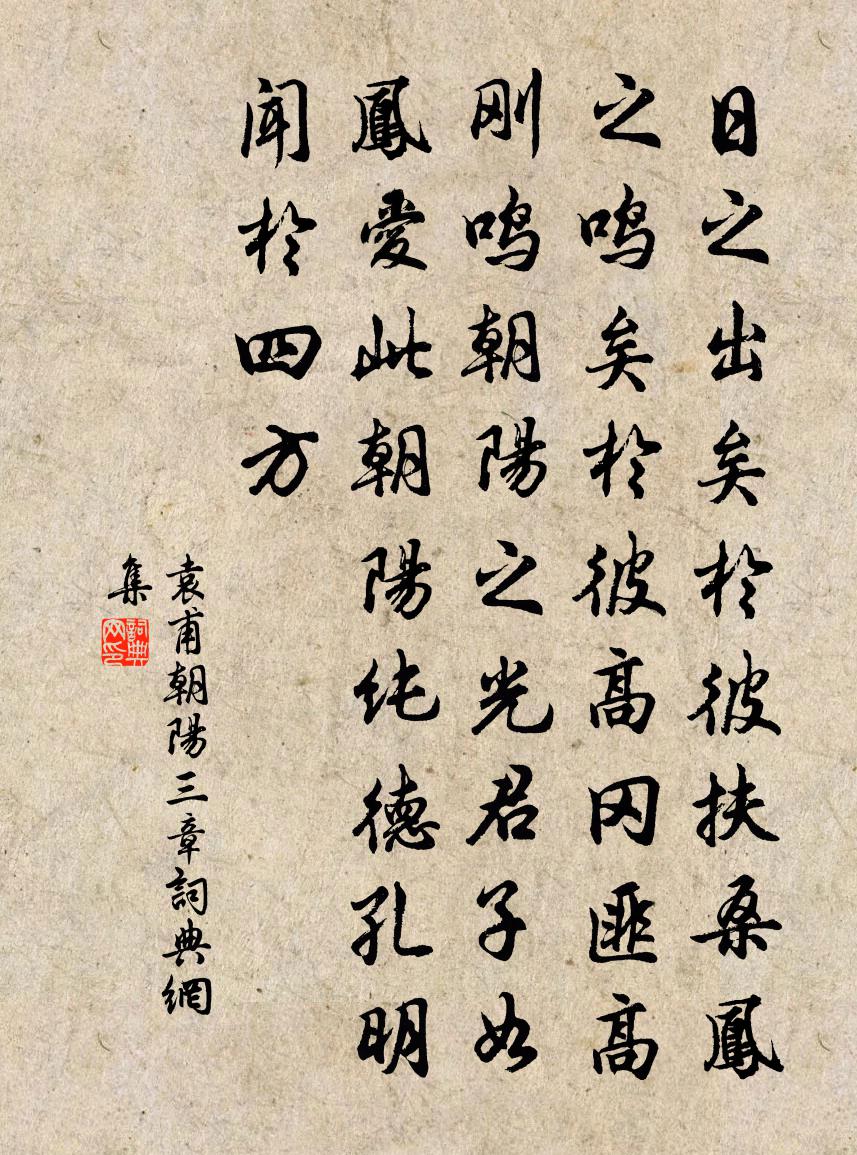 日之出矣於彼扶桑鳳
之鳴矣於彼高冈匪高
刚鳴朝陽之光君子如
鳳愛此朝陽纯德孔明
闻於四方
袁甫朝陽三章詞典網
集
詞典
网印